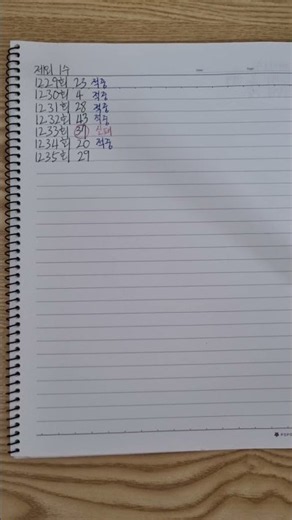 제외 1수
1229회 23 적중
1230회 4 적중
1231회 28 적중
1232회 43 적중
1233회 37
1234회 20 적중
1235회 29